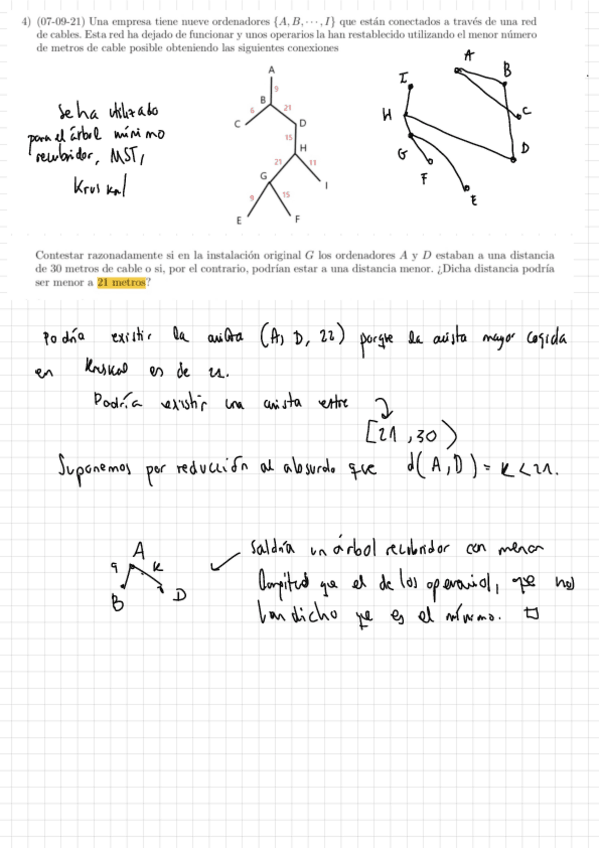 4) (07-09-21) Una empresa tiene nueve ordenadores {A, B, ⋯ , I} que están conectados a través de una red
de cables. Esta red ha dejado de funcionar y unos operarios la han restablecido utilizando el menor número
de metros de cable posible obteniendo las siguientes conexiones
Se ha utilizado
para el árbol mínimo
recubridor, MST,
Kruskal
A
9
B
6
21
C
D
15
H
21
11
G
I
9
15
E
F
A
I
B
H
C
G
D
F
E
Contestar razonadamente si en la instalación original G los ordenadores A y D estaban a una distancia
de 30 metros de cable o si, por el contrario, podrían estar a una distancia menor. ¿Dicha distancia podría
ser menor a 21 metros?
Podría existir la arista (A, D, 22) porque la arista mayor cogida
en Kruskal es de 21.
Podría existir una arista entre
[21, 30)
Suponemos por reducción al absurdo que d(A, D) = K < 21.
A
9 K
B D
Saldría un árbol recubridor con menor
longitud que el de los operarios, que nos
han dicho que es el mínimo. □